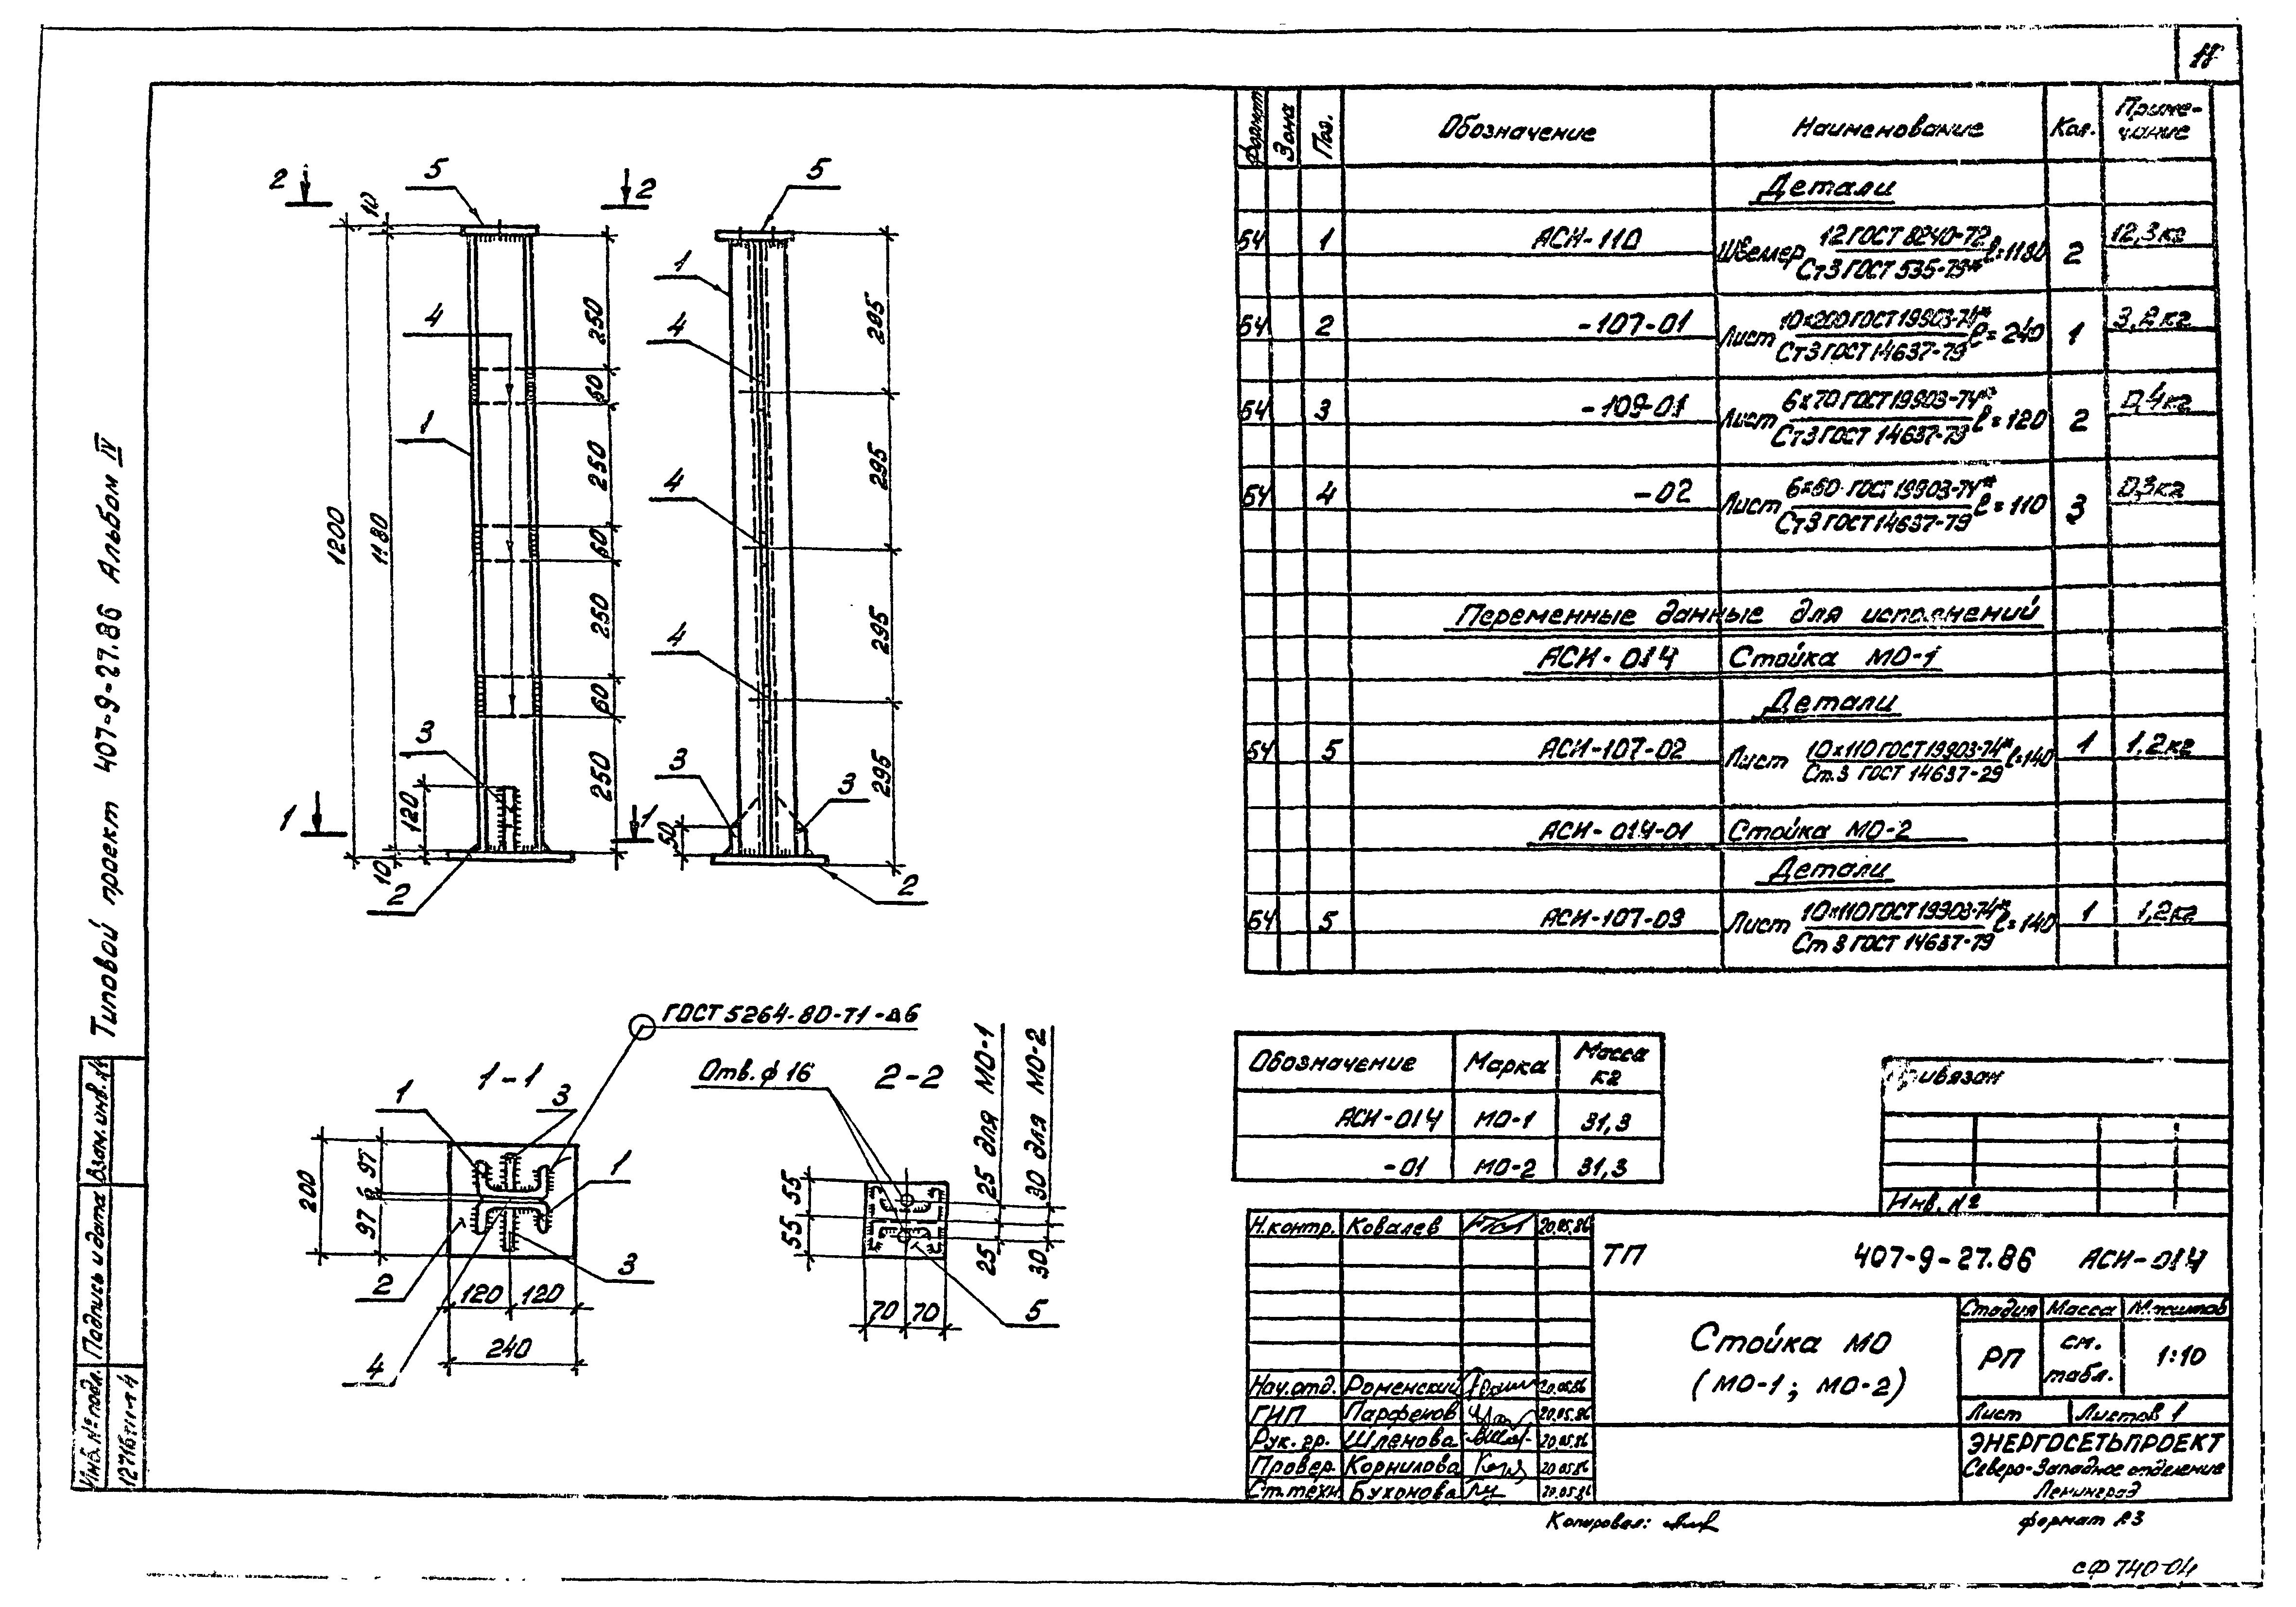 Типовой проект 407-9-27.86 Альбом IV
Взам.инв.№
Подпись и дата
Инв. № подл.
2
5
2
5
10
1
4
250
295
4
60
1
1200
1180
250
4
295
60
250
4
295
3
60
3
3
120
250
295
1
1
50
10
2
2
ГОСТ 5264-80-Т1-△6
1-1
Отв. ф 16
2-2
25 для МО-1
30 для МО-2
1
3
1
200
97
6
97
2
3
120
120
240
4
55
55
25
30
70
70
5
Формат
Зона
Поз.
Обозначение
Наименование
Кол.
Приме-
чание
Детали
БЧ 1 АСИ-110 Швеллер 12 ГОСТ 8240-72 ℓ=1180 2 12,3кг
Ст3 ГОСТ 535-79*
БЧ 2 -107-01 Лист 10х200 ГОСТ 19903-74* ℓ=240 1 3,8кг
Ст3 ГОСТ 14637-79
БЧ 3 -109-01 Лист 6х70 ГОСТ 19903-74* ℓ=120 2 0,4кг
Ст3 ГОСТ 14637-79
БЧ 4 -02 Лист 6х60 ГОСТ 19903-74* ℓ=110 3 0,3кг
Ст3 ГОСТ 14637-79
Переменные данные для исполнений
АСИ-014 Стойка МО-1
Детали
БЧ 5 АСИ-107-02 Лист 10х110 ГОСТ 19903-74* ℓ=140 1 1,2кг
Ст.3 ГОСТ 14637-29
АСИ-014-01 Стойка МО-2
Детали
БЧ 5 АСИ-107-03 Лист 10х110 ГОСТ 19903-74* ℓ=140 1 1,2кг
Ст 3 ГОСТ 14637-79
Обозначение Марка Масса
кг
АСИ-014 МО-1 31,3
-01 МО-2 31,3
Привязан
Инв. №
Н.контр. Ковалев 20.05.86
ТП 407-9-27.86 АСИ-014
Стойка МО
(МО-1; МО-2)
Стадия Масса Масштаб
РП см.
табл. 1:10
Лист Листов 1
Нач.отд. Роменский 20.05.86
ГИП Парфенов 20.05.86
Рук. гр. Шленова 20.05.86
Провер. Корнилова 20.05.86
Ст.техн. Буханова 20.05.86
ЭНЕРГОСЕТЬПРОЕКТ
Северо-Западное отделение
Ленинград
Копировал:
формат А3
сф 740-04